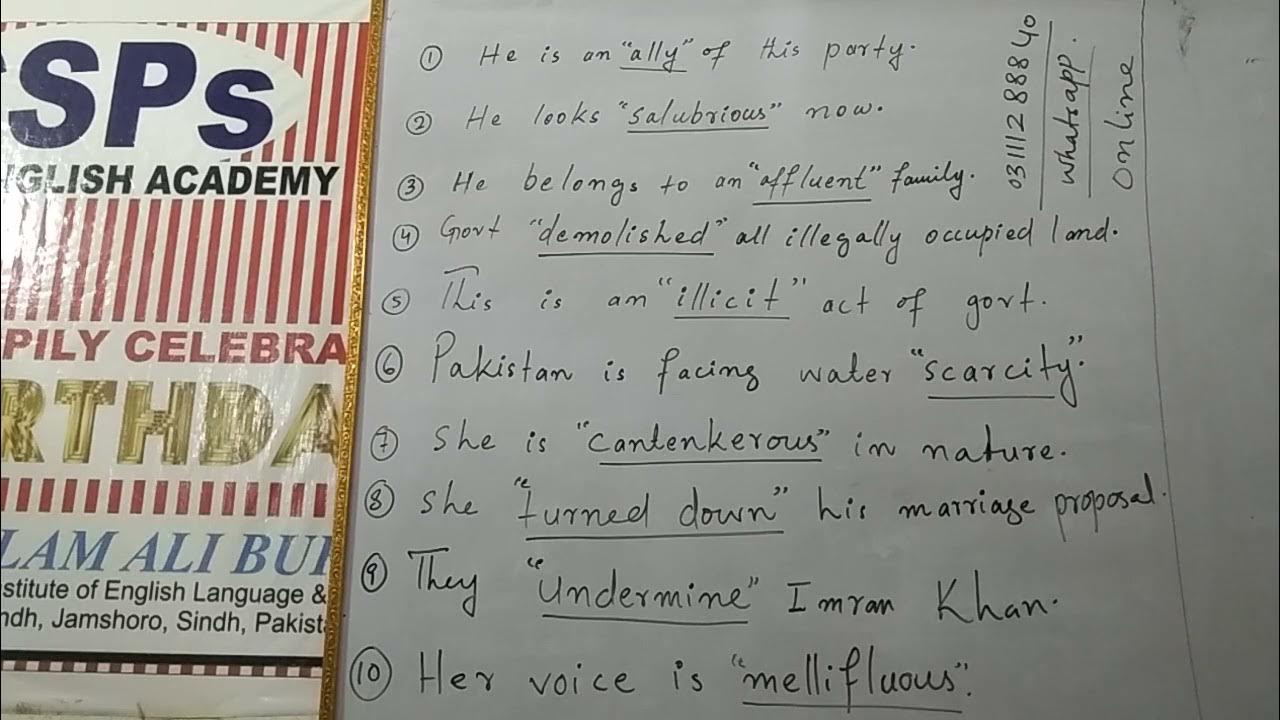 SPs
GLISH ACADEMY
PILY CELEBRA
RTHDA
LAM ALI BU
stitute of English Language &
ndh, Jamshoro, Sindh, Pakist
① He is an "ally" of this party.
② He looks "salubrious" now.
③ He belongs to an "affluent" family.
④ Govt "demolished" all illegally occupied land.
⑤ This is an "illicit" act of govt.
⑥ Pakistan is facing water "scarcity".
⑦ She is "cantenkerous" in nature.
⑧ She "turned down" his marriage proposal.
⑨ They "undermine" Imran Khan.
⑩ Her voice is "mellifluous".
03111288840
whatsapp.
Online